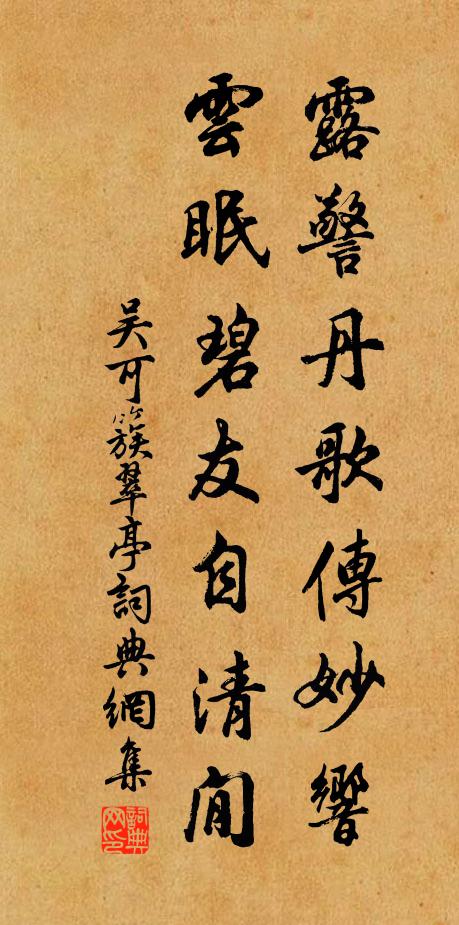 露警丹歌傳妙響
雲眠碧友自清閒
吴可簇翠亭詞典網集
詞典网印